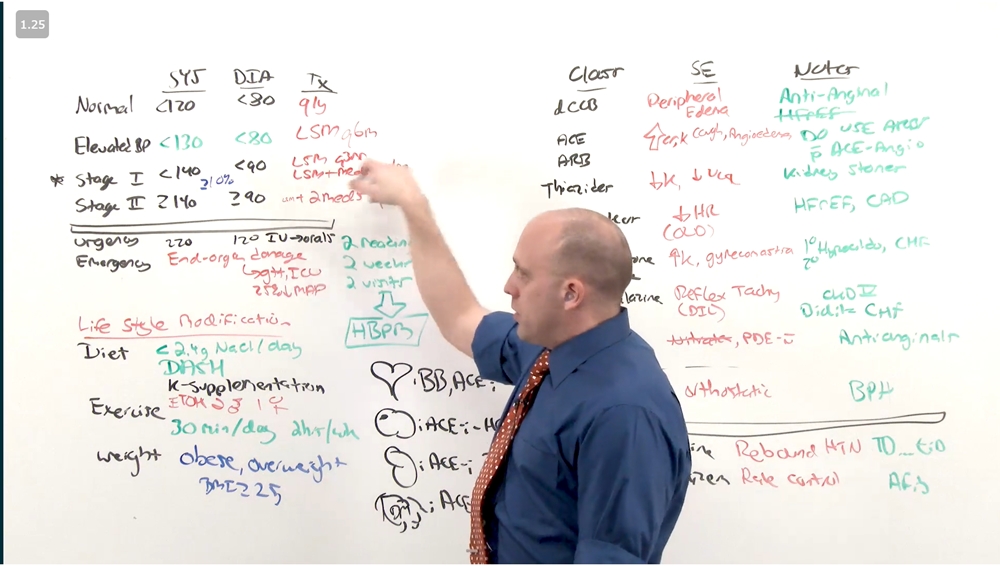 1.25
SYS DIA Tx
Normal <120 <80 q1y
Elevated BP <130 <80 LSM q6m
* Stage I <140 <90 LSM q3m
≥10% LSM + meds
Stage II ≥140 ≥90 2 meds
urgency 220 120 IV→orals
Emergency End-organ damage
↳gtt, ICU
25%↓MAP
2 readin
2 weeks
2 visits
HBPM
Life Style Modification
Diet <2.4g NaCl/day
DASH
K-Supplementation
ETOH 2♂ 1♀
Exercise 30 min/day 2hr/wk
weight obese, overweight
BMI ≥ 25
: BB, ACE-i
: ACE-i-
: ACE-i
: ACE
Class SE Notes
dCCB Peripheral Edema Anti-Anginal
HFrEF
ACE ↑Cr, K Cough, Angioedema DO USE ARBs
ARB p̄ ACE-Angio
Thiazides ↓K, ↓ Kidney stones
↓HR HFrEF, CAD
↑K, gynecomastia 1° Hyperaldo, CHF
2°
lazine Reflex Tachy CKD IV
(DIL) CHF
Nitrates, PDE-i Antianginals
orthostatic BPH
ine Rebound HTN
zem Rate control AFib